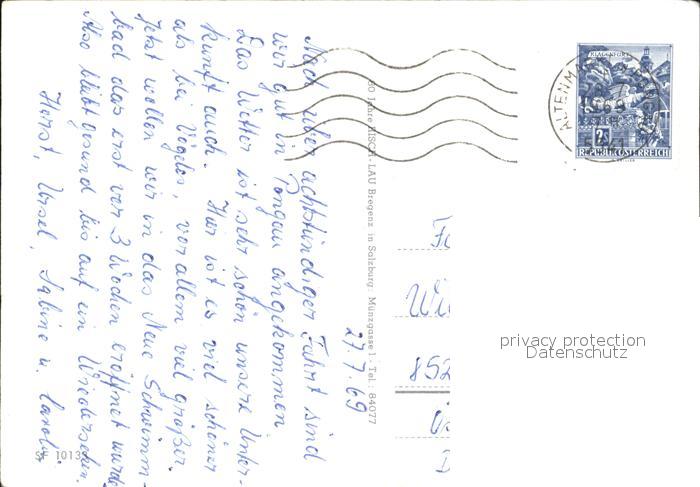 27.7.69
Nach über achtstündiger Fahrt sind
wir gut in Pongau angekommen
Das Wetter ist sehr schön unsere Unter-
kunft auch. Hier ist es viel schöner
als bei Vögeles, vor allem viel größer.
Jetzt wollen wir in das Neue Schwimm-
bad das erst vor 3 Wochen eröffnet wurde
Also bleibt gesund bis auf ein Wiedersehen.
Horst, Ursel, Sabine u.
SF 1013
60 Jahre RISCH-LAU Bregenz in Salzburg: Münzgasse 1 - Tel.: 84077
KLAGENFURT
2S
REPUBLIK ÖSTERREICH
ALTENMARKT
5541
Fa
Wi
852
D
privacy protection
Datenschutz